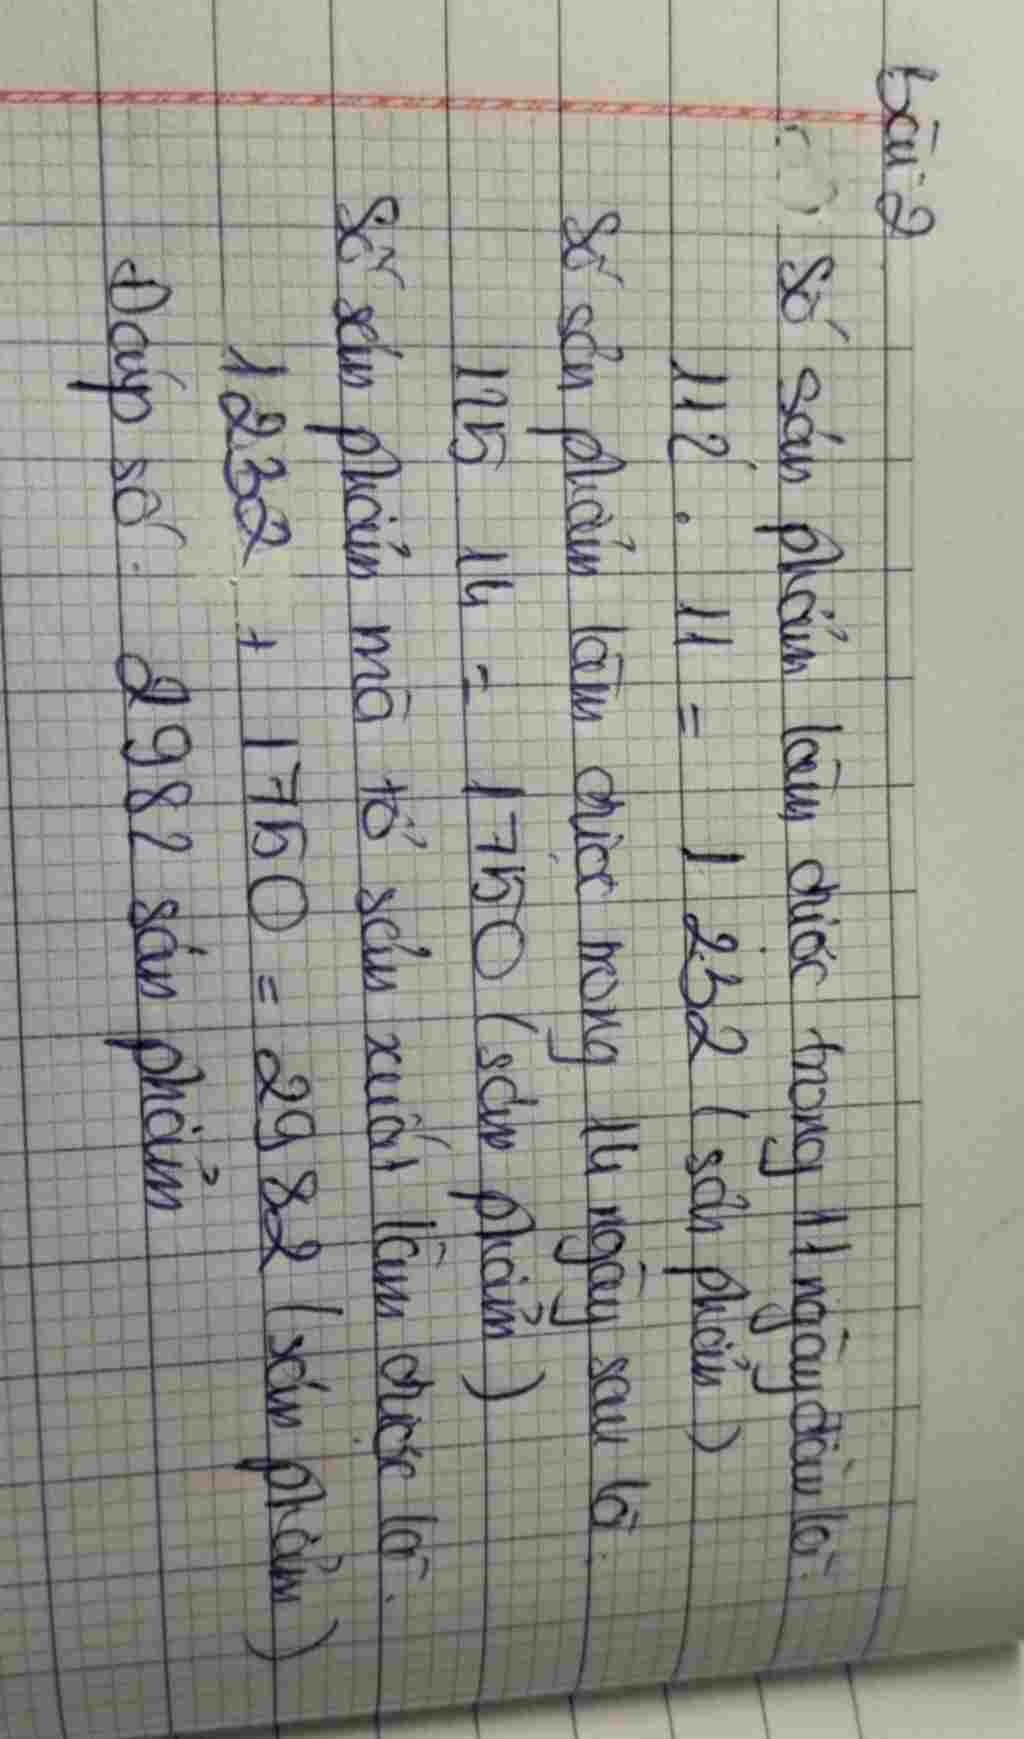 Bài 2
Số sản phẩm làm được trong 11 ngày đầu là:
112 . 11 = 1 232 (sản phẩm)
Số sản phẩm làm được trong 14 ngày sau là:
125 . 14 = 1750 (sản phẩm)
Số sản phẩm mà tổ sản xuất làm được là:
1232 + 1750 = 2982 (sản phẩm)
Đáp số: 2982 sản phẩm